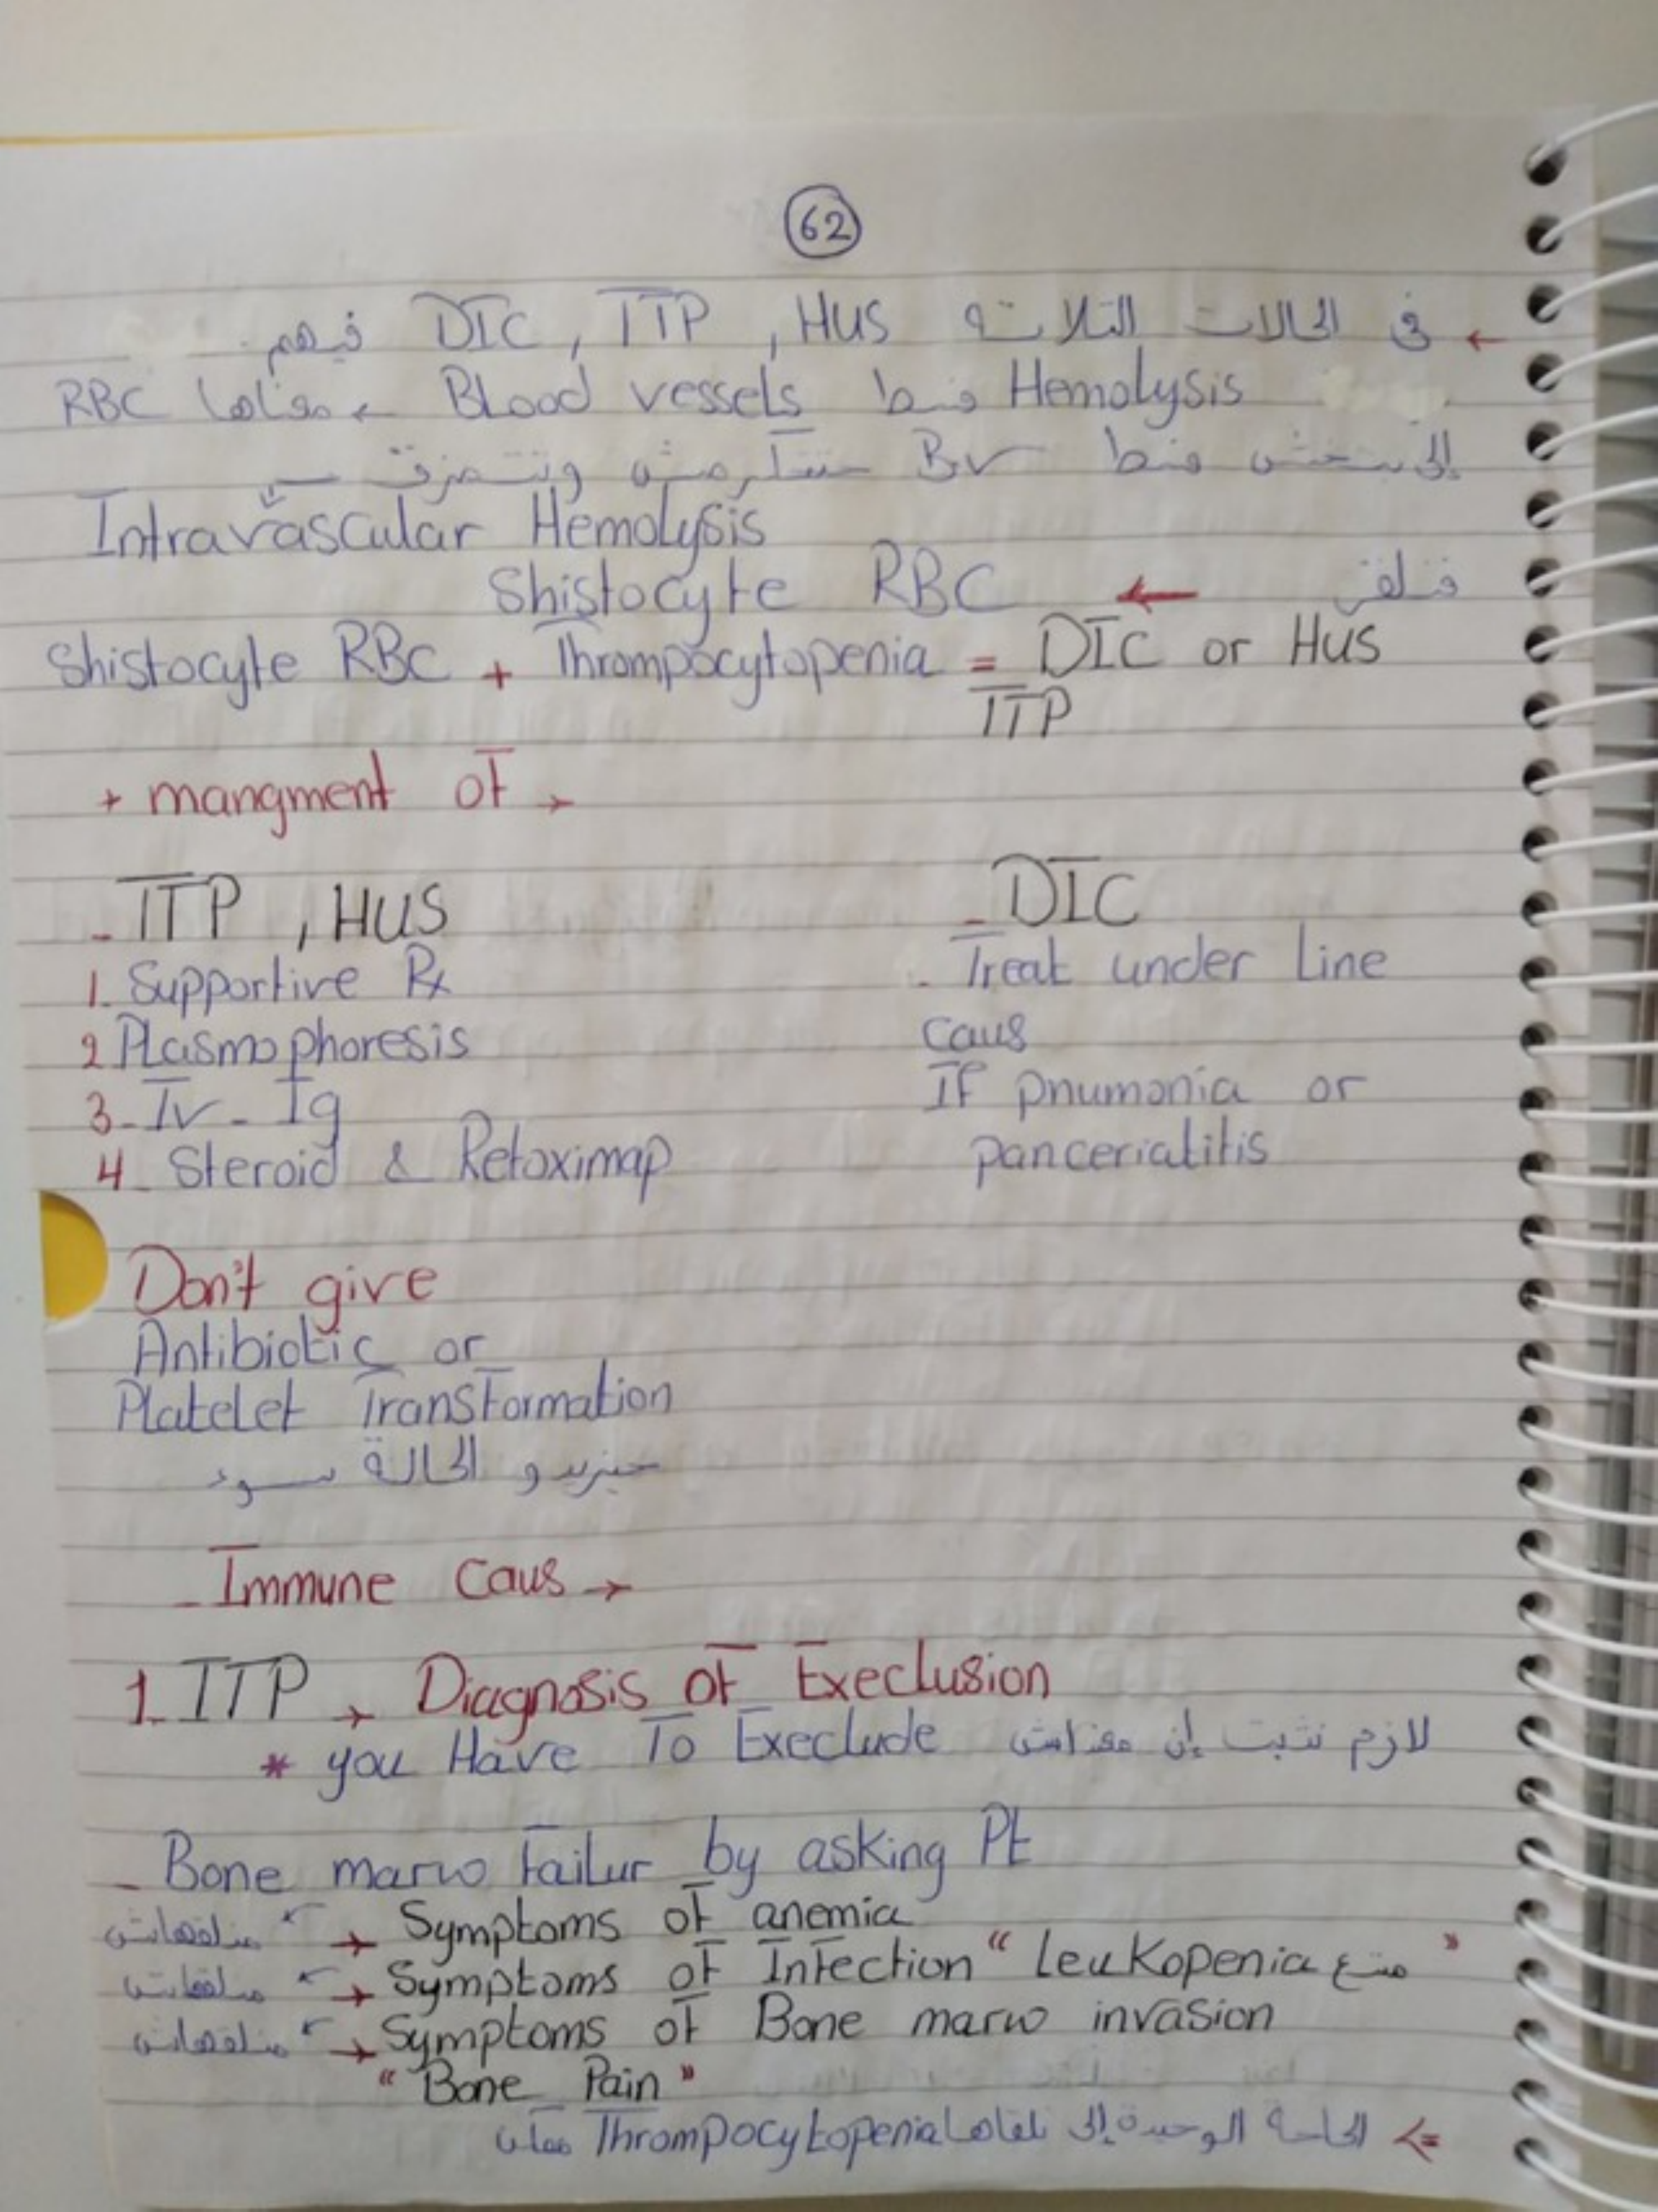 62
← في الحالات التلاته DIC , TTP , HUS فيهم
Hemolysis وسط Blood vessels ← معناها RBC
إلى بتخش وسط BV حتتكرمش وتتمزق
Intravascular Hemolysis
فنلقى ← Shistocyte RBC
Shistocyte RBC + Thrompocytopenia = DIC or HUS
TTP
+ mangment of →
- TTP , HUS
1. Supportive Rx
2 Plasmophoresis
3- IV - Ig
4- Steroid & Retoximap
- DIC
- Treat under Line
caus
If pnumonia or
panceriatitis
Don't give
Antibiotic or
Platelet Transformation
حيزيدو الحالة سوء
- Immune Caus →
1. ITP → Diagnosis of Execlusion
* you Have To Execlude لازم نثبت إن معنداش
- Bone marw failur by asking Pt
→ Symptoms of anemia
→ Symptoms of Infection " Leukopenia متع "
→ Symptoms of Bone marw invasion
" Bone Pain "
=> الحاجة الوحيدة إلى نلقاها Thrompocytopenia